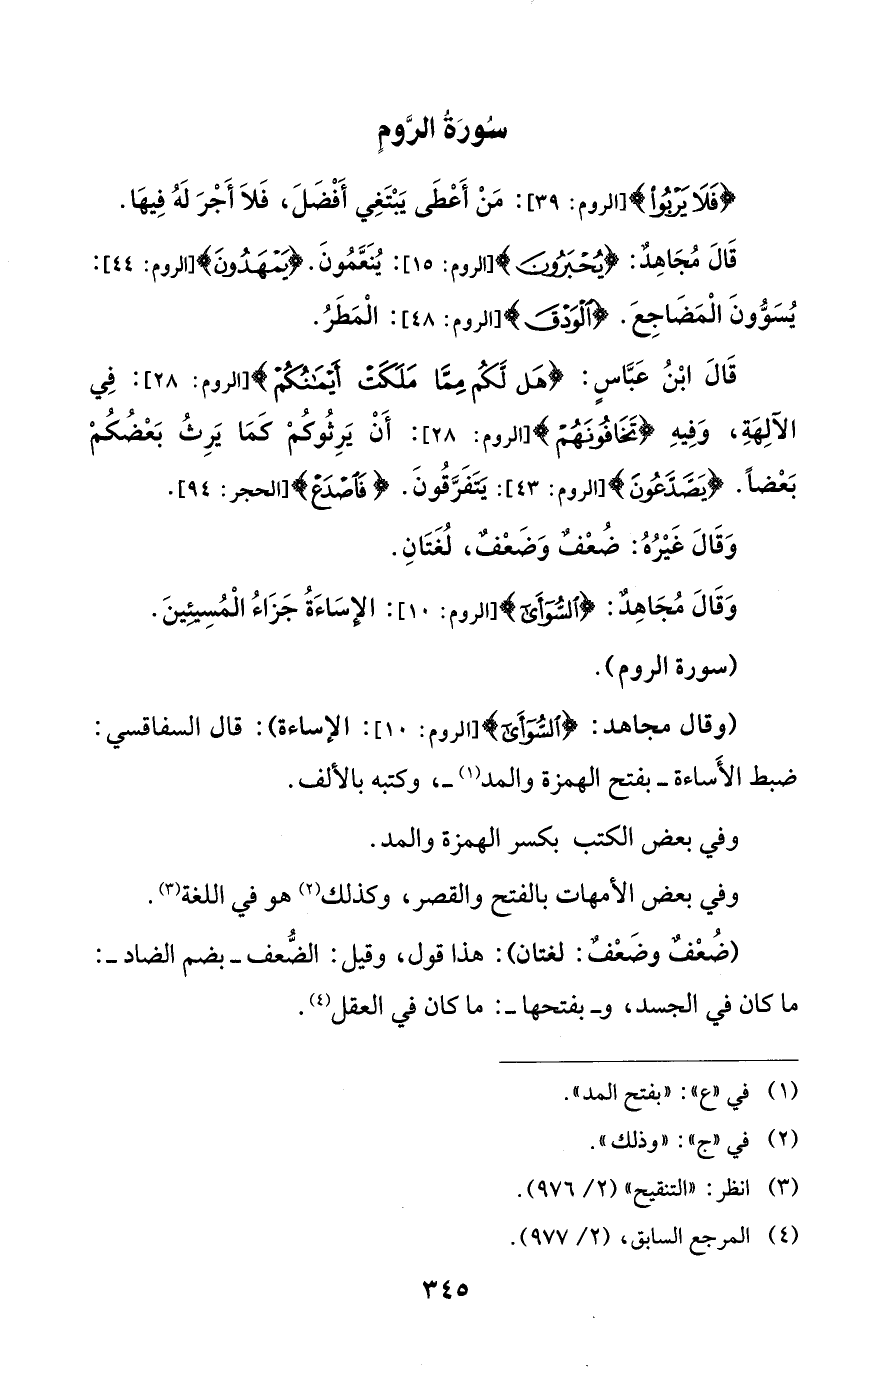 سُورَةُ الرَّومِ
﴿فَلَا يَرْبُوا۟﴾[الروم: ٣٩]: مَنْ أَعْطَى يَبْتَغِي أَفْضَلَ، فَلاَ أَجْرَ لَهُ فِيهَا.
قَالَ مُجَاهِدٌ: ﴿يُحْبَرُونَ﴾[الروم: ١٥]: يُنَعَّمُونَ. ﴿يَمْهَدُونَ﴾[الروم: ٤٤]:
يُسَوُّونَ الْمَضَاجِعَ. ﴿ٱلْوَدْقَ﴾[الروم: ٤٨]: الْمَطَرُ.
قَالَ ابْنُ عَبَّاسٍ: ﴿هَل لَّكُم مِّمَّا مَلَكَتْ أَيْمَـٰنُكُمْ﴾[الروم: ٢٨]: فِي
الآلِهَةِ، وَفِيهِ ﴿تَخَافُونَهُمْ﴾[الروم: ٢٨]: أَنْ يَرِثُوكُمْ كَمَا يَرِثُ بَعْضُكُمْ
بَعْضاً. ﴿يَصَّدَّعُونَ﴾[الروم: ٤٣]: يَتَفَرَّقُونَ. ﴿فَٱصْدَعْ﴾[الحجر: ٩٤].
وَقَالَ غَيْرُهُ: ضُعْفٌ وَضَعْفٌ، لُغَتَانِ.
وَقَالَ مُجَاهِدٌ: ﴿ٱلسُّوٓأَىٰٓ﴾[الروم: ١٠]: الإِسَاءَةُ جَزَاءُ الْمُسِيئِينَ.
(سورة الروم).
(وقال مجاهد: ﴿ٱلسُّوٓأَىٰٓ﴾[الروم: ١٠]: الإساءة): قال السفاقسي:
ضبط الأَساءة ـ بفتح الهمزة والمد(١) ـ، وكتبه بالألف.
وفي بعض الكتب بكسر الهمزة والمد.
وفي بعض الأمهات بالفتح والقصر، وكذلك(٢) هو في اللغة(٣).
(ضُعْفٌ وضَعْفٌ: لغتان): هذا قول، وقيل: الضُّعف ـ بضم الضاد ـ:
ما كان في الجسد، و ـ بفتحها ـ: ما كان في العقل(٤).
(١) في «ع»: «بفتح المد».
(٢) في «ج»: «وذلك».
(٣) انظر: «التنقيح» (٢/ ٩٧٦).
(٤) المرجع السابق، (٢/ ٩٧٧).
٣٤٥